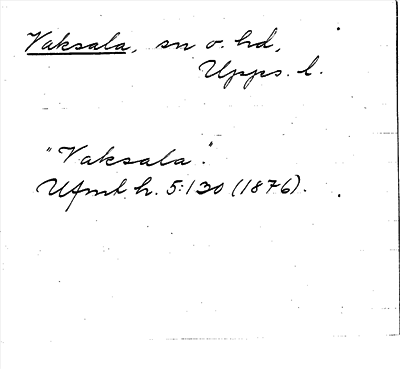 Vaksala, sn o. hd,
Upps. l.
"Vaksala".
Ufmt. h. 5:130 (1876).